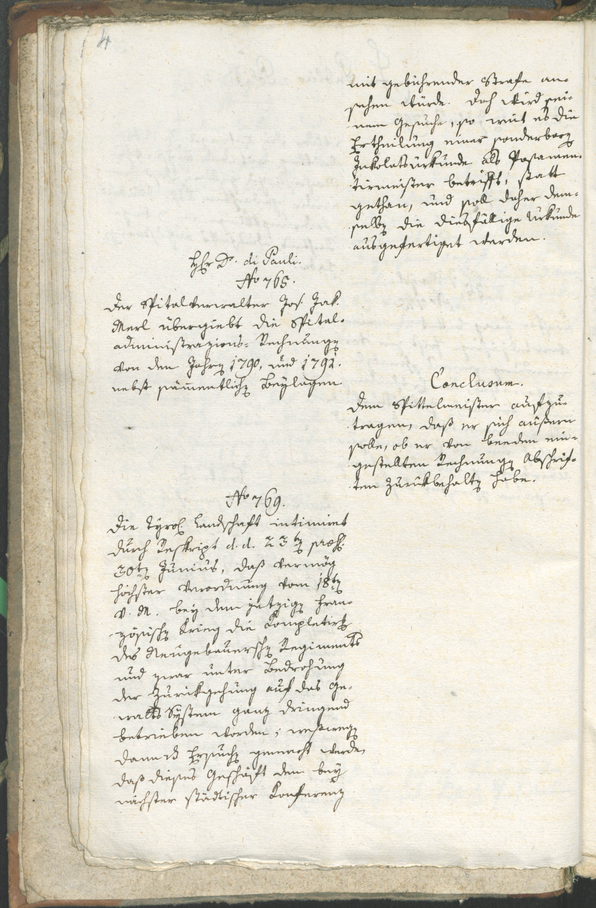 4
mit gebührender Strafe an-
sehen würde. Doch wird sei-
nem Gesuche, so weit es die
Ertheilung einer sonderbaren
Inkolatsurkunde als Posamen-
tirmeister betrifft, statt
gethan, und soll daher dem-
selben die diesfällige Urkunde
ausgefertiget werden.
Hr Dr. di Pauli.
No 768.
Der Spitalverwalter Jos. Jak.
Merl übergiebt die Spital-
administrazions-Rechnungen
von den Jahren 1790, und 1791.
nebst sämmentlichen Beylagen
Conclusum.
Dem Spittelmeister aufzu-
tragen, daß er sich äußern
solle, ob er von beeden ein-
gestellten Rechnungen Abschrif-
ten zurükbehalten habe.
No 769.
Die Tyrol. Landschaft intimirt
durch Reskript d. d. 23ten präs.
30ten Junius, daß vermög
höchster Verordnung vom 18ten
d. M. bey dem jetzigen fran-
zösischen Krieg die Completirung
des Neugebauerschen Regiments
und zwar unter Bedrohung
der Zurükgehung auf das Ge-
walts-System ganz dringend
betrieben worden; weßwegen
dann das Ersuchen gemacht werde,
daß dieses Geschäft den bey
nächster städtischer Konferenz